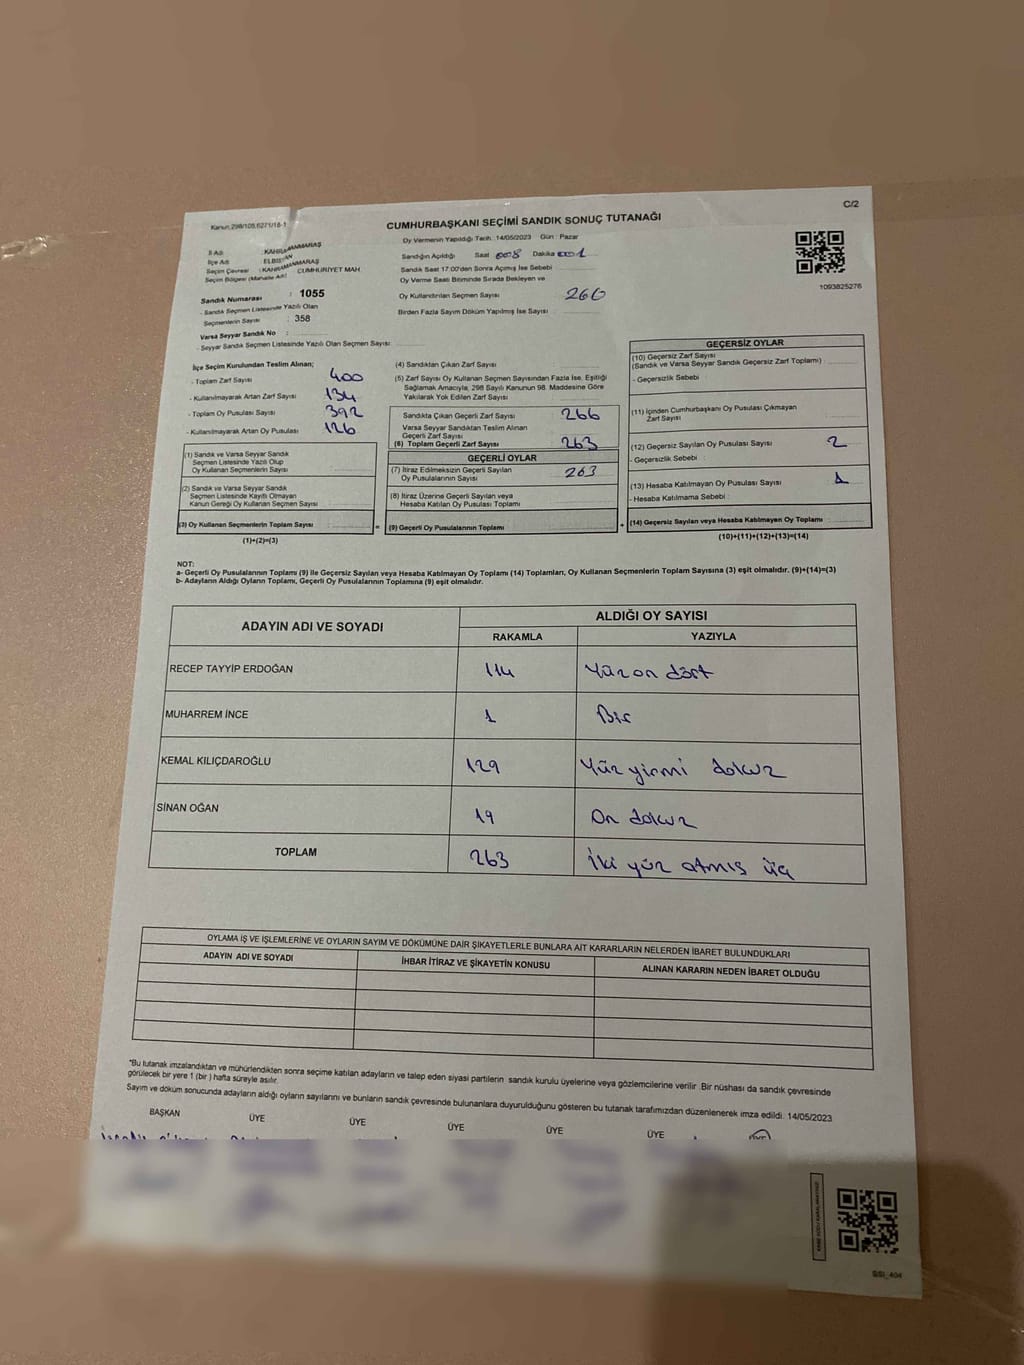 Kanun:298/105,6271/16-1
CUMHURBAŞKANI SEÇİMİ SANDIK SONUÇ TUTANAĞI
C/2
İl Adı : KAHRAMANMARAŞ
İlçe Adı : ELBİSTAN
Seçim Çevresi : KAHRAMANMARAŞ
Seçim Bölgesi (Mahalle Adı) CUMHURİYET MAH
Sandık Numarası : 1055
- Sandık Seçmen Listesinde Yazılı Olan
Seçmenlerin Sayısı : 358
Varsa Seyyar Sandık No :
- Seyyar Sandık Seçmen Listesinde Yazılı Olan Seçmen Sayısı:
Oy Vermenin Yapıldığı Tarih :14/05/2023 Gün : Pazar
Sandığın Açıldığı Saat 008 Dakika
Sandık Saat 17:00'den Sonra Açımış İse Sebebi
Oy Verme Saati Bitiminde Sırada Bekleyen ve
Oy Kullandırılan Seçmen Sayısı 266
Birden Fazla Sayım Döküm Yapılmış İse Sayısı
1093825276
İlçe Seçim Kurulundan Teslim Alınan;
- Toplam Zarf Sayısı 400
- Kullanılmayarak Artan Zarf Sayısı 134
- Toplam Oy Pusulası Sayısı 392
- Kullanılmayarak Artan Oy Pusulası 126
(1) Sandık ve Varsa Seyyar Sandık
Seçmen Listesinde Yazılı Olup
Oy Kullanan Seçmenlerin Sayısı
(2) Sandık ve Varsa Seyyar Sandık
Seçmen Listesinde Kayıtlı Olmayan
Kanun Gereği Oy Kullanan Seçmen Sayısı
(3) Oy Kullanan Seçmenlerin Toplam Sayısı
=
(1)+(2)=(3)
(4) Sandıktan Çıkan Zarf Sayısı
(5) Zarf Sayısı Oy Kullanan Seçmen Sayısından Fazla İse, Eşitliği
Sağlamak Amacıyla, 298 Sayılı Kanunun 98. Maddesine Göre
Yakılarak Yok Edilen Zarf Sayısı
Sandıkta Çıkan Geçerli Zarf Sayısı 266
Varsa Seyyar Sandıktan Teslim Alınan
Geçerli Zarf Sayısı
(6) Toplam Geçerli Zarf Sayısı 263
GEÇERLİ OYLAR
(7) İtiraz Edilmeksizin Geçerli Sayılan
Oy Pusulalarının Sayısı 263
(8) İtiraz Üzerine Geçerli Sayılan veya
Hesaba Katılan Oy Pusulası Toplamı
(9) Geçerli Oy Pusulalarının Toplamı
+
GEÇERSİZ OYLAR
(10) Geçersiz Zarf Sayısı
(Sandık ve Varsa Seyyar Sandık Geçersiz Zarf Toplamı)
- Geçersizlik Sebebi :
(11) İçinden Cumhurbaşkanı Oy Pusulası Çıkmayan
Zarf Sayısı
(12) Geçersiz Sayılan Oy Pusulası Sayısı 2
- Geçersizlik Sebebi :
(13) Hesaba Katılmayan Oy Pusulası Sayısı 1
- Hesaba Katılmama Sebebi :
(14) Geçersiz Sayılan veya Hesaba Katılmayan Oy Toplamı
(10)+(11)+(12)+(13)=(14)
NOT:
a- Geçerli Oy Pusulalarının Toplamı (9) ile Geçersiz Sayılan veya Hesaba Katılmayan Oy Toplamı (14) Toplamları, Oy Kullanan Seçmenlerin Toplam Sayısına (3) eşit olmalıdır. (9)+(14)=(3)
b- Adayların Aldığı Oyların Toplamı, Geçerli Oy Pusulalarının Toplamına (9) eşit olmalıdır.
ADAYIN ADI VE SOYADI ALDIĞI OY SAYISI
RAKAMLA YAZIYLA
RECEP TAYYİP ERDOĞAN 114 Yüz on dört
MUHARREM İNCE 1 Bir
KEMAL KILIÇDAROĞLU 129 Yüz yirmi dokuz
SİNAN OĞAN 19 On dokuz
TOPLAM 263 İki yüz atmış üç
OYLAMA İŞ VE İŞLEMLERİNE VE OYLARIN SAYIM VE DÖKÜMÜNE DAİR ŞİKAYETLERLE BUNLARA AİT KARARLARIN NELERDEN İBARET BULUNDUKLARI
ADAYIN ADI VE SOYADI İHBAR İTİRAZ VE ŞİKAYETİN KONUSU ALINAN KARARIN NEDEN İBARET OLDUĞU
*Bu tutanak imzalandıktan ve mühürlendikten sonra seçime katılan adayların ve talep eden siyasi partilerin sandık kurulu üyelerine veya gözlemcilerine verilir. Bir nüshası da sandık çevresinde
görülecek bir yere 1 (bir) hafta süreyle asılır.
Sayım ve döküm sonucunda adayların aldığı oyların sayılarını ve bunların sandık çevresinde bulunanlara duyurulduğunu gösteren bu tutanak tarafımızdan düzenlenerek imza edildi. 14/05/2023
BAŞKAN ÜYE ÜYE ÜYE ÜYE ÜYE
SSI_404